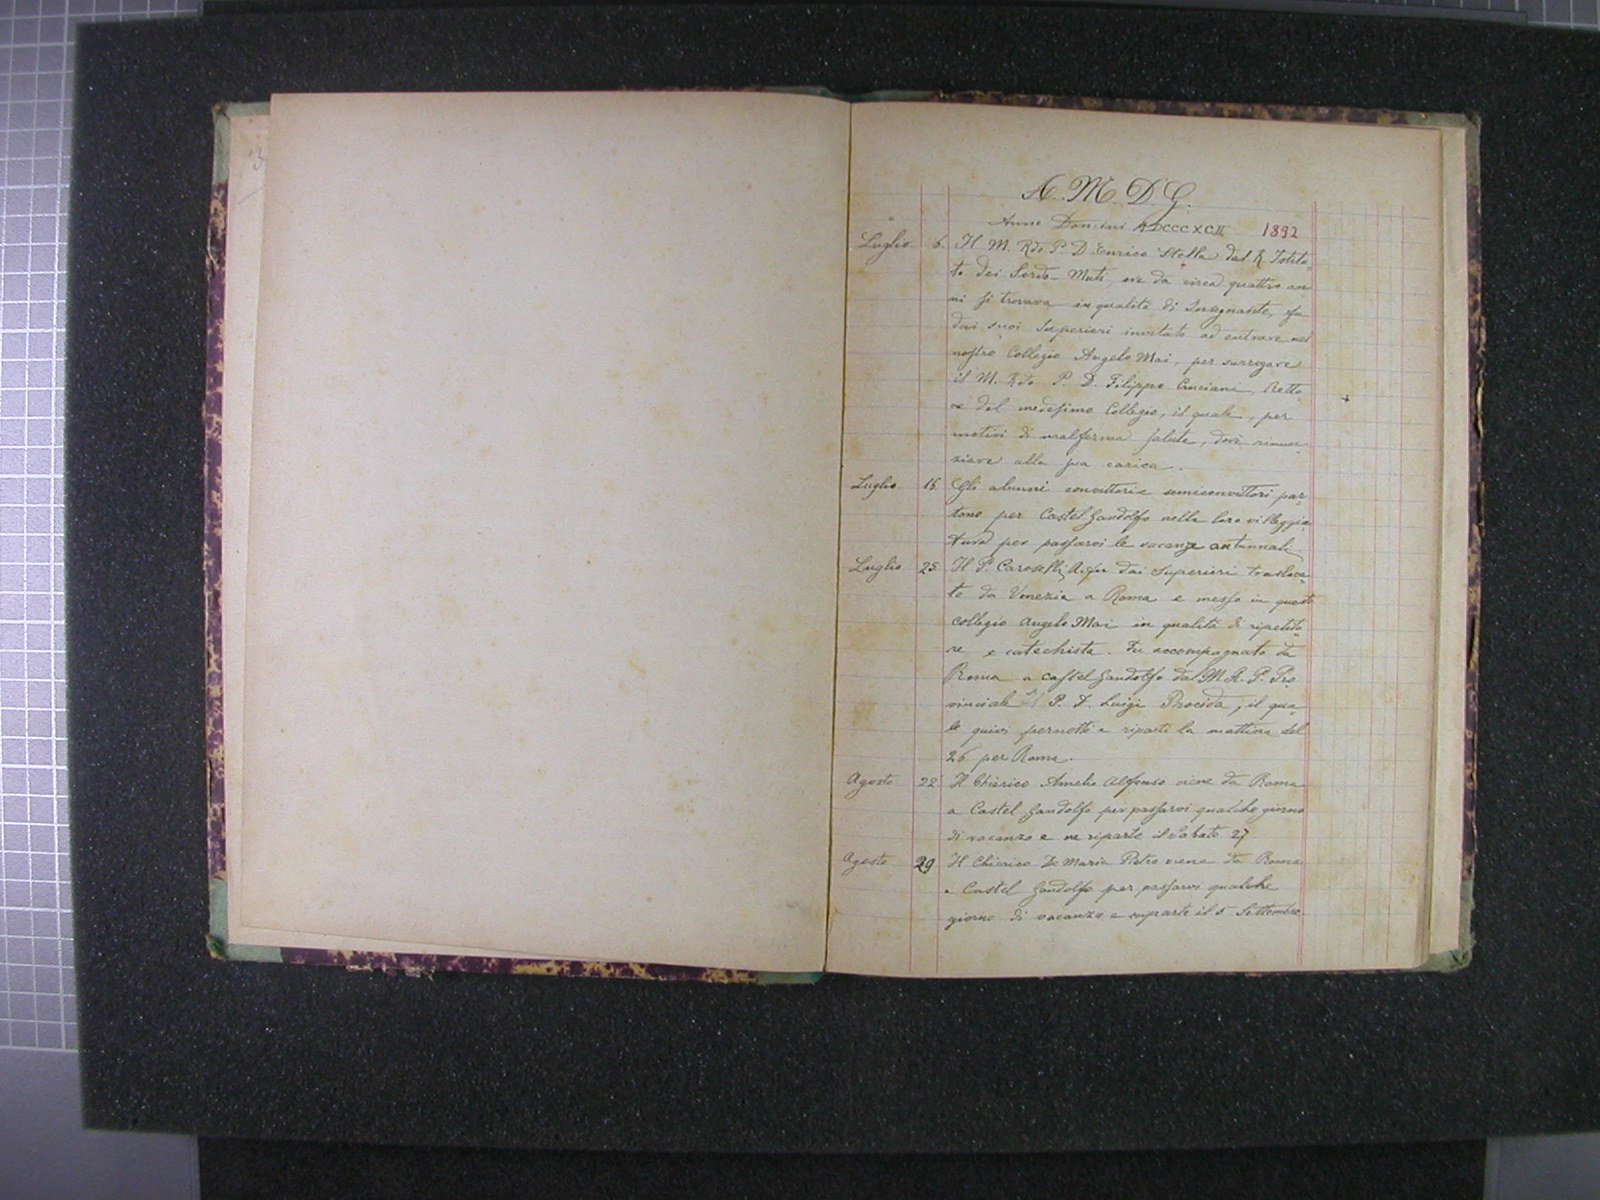 3
A. M. D. G.
Anno Domini MDCCCXCII 1892
Luglio 6. Il M. Rdo P. D. Enrico Stella dal R. Istitu-
to dei Sordo-Muti, ove da circa quattro an-
ni si trovava in qualità di Insegnante, fu
dai suoi Superieri invitato ad entrare nel
nostro Collegio Angelo Mai, per surrogare
il M. Rdo P. D. Filippo Cruciani, Retto-
re del medesimo Collegio, il quale, per
motivi di malferma salute, dovè rinun-
ziare alla sua carica.
Luglio 16 Gli alunni convittori e semiconvittori par-
tono per Castel Gandolfo nella loro villeggia-
tura per passarvi le vacanze autunnali
Luglio 25 Il P. Caroselli A. fu dai Superieri trasloca-
to da Venezia a Roma e messo in questo
collegio Angelo Mai in qualità di ripetito-
re e catechista. Fu accompagnato da
Roma a Castel Gandolfo dal M. R. P. Pro-
vinciale P. D. Luigi Procida, il qua-
le quivi pernottò e ripartì la mattina del
26 per Roma.
Agosto 22 Il Chierico Amelio Alfonso viene da Roma
a Castel Gandolfo per passarvi qualche giorno
di vacanza e ne riparte il Sabato 27
Agosto 29 Il Chierico De Maria Pietro viene da Roma
a Castel Gandolfo per passarvi qualche
giorno di vacanza e riparte il 5 Settembre.